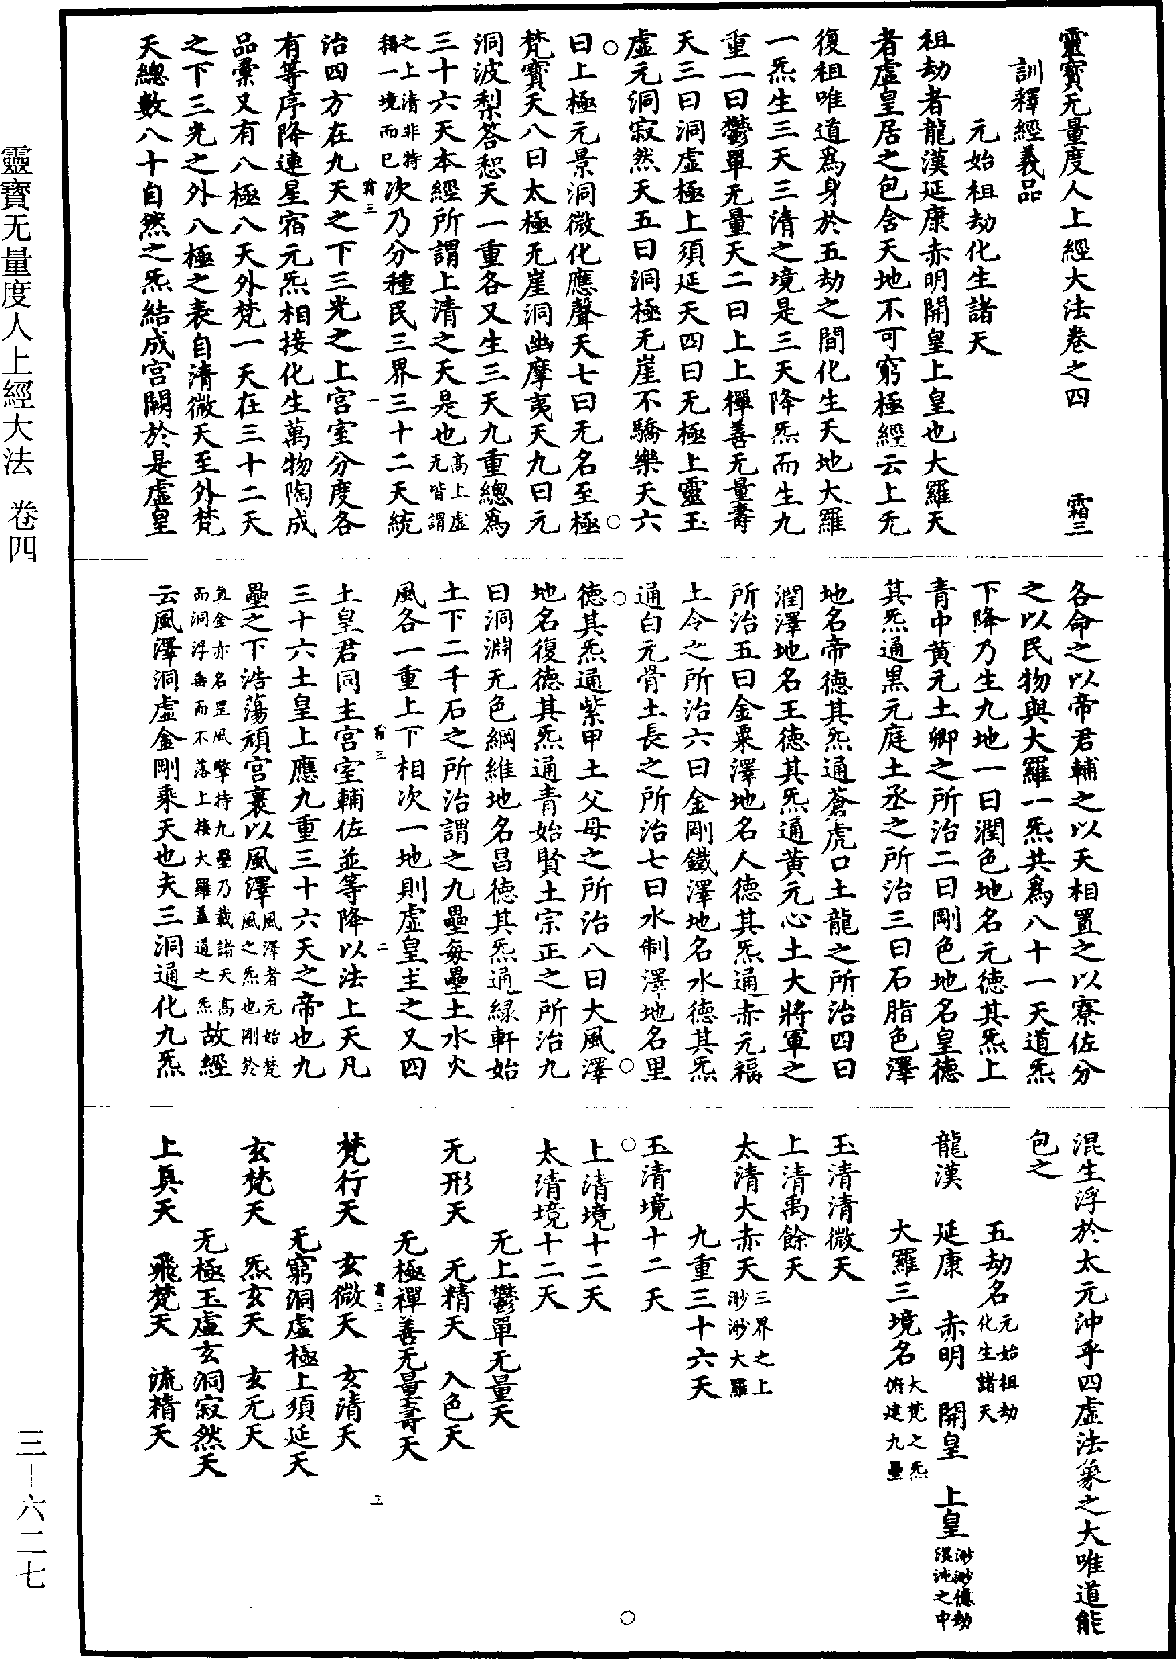 靈寶无量度人上經大法卷之四　霜三
訓釋經義品
元始祖劫化生諸天
祖劫者龍漢延康赤明開皇上皇也大羅天
者虛皇居之包含天地不可窮極經云上无
復祖唯道為身於五劫之間化生天地大羅
一炁生三天三清之境是三天降炁而生九
重一曰鬱單无量天二曰上上禪善无量壽
天三曰洞虛極上須延天四曰无極上靈玉
虛元洞寂然天五曰洞極无崖不驕樂天六
曰上極元景洞微化應聲天七曰无名至極
梵寶天八曰太極无崖洞幽摩夷天九曰元
洞波梨答恕天一重各又生三天九重總為
三十六天本經所謂上清之天是也高上虛
无皆謂
之上清非特
稱一境而已次乃分種民三界三十二天統
治四方在九天之下三光之上宮室分度各
有等序降連星宿元炁相接化生萬物陶成
品彙又有八極八天外梵一天在三十二天
之下三光之外八極之表自清微天至外梵
天總數八十自然之炁結成宮闕於是虛皇
各命之以帝君輔之以天相置之以寮佐分
之以民物與大羅一炁共為八十一天道炁
下降乃生九地一曰潤色地名元德其炁上
青中黃元土卿之所治二曰剛色地名皇德
其炁通黑元庭土丞之所治三曰石脂色澤
地名帝德其炁通蒼虎口土龍之所治四曰
潤澤地名王德其炁通黃元心土大將軍之
所治五曰金粟澤地名人德其炁通赤元福
土令之所治六曰金剛鐵澤地名水德其炁
通白元骨土長之所治七曰水制澤地名里
德其炁通紫甲土父母之所治八曰大風澤
地名復德其炁通青始賢土宗正之所治九
曰洞淵无色綱維地名昌德其炁通綠軒始
土下二千石之所治謂之九壘每壘土水火
風各一重上下相次一地則虛皇主之又四
土皇君同主宮室輔佐並等降以法上天凡
三十六土皇上應九重三十六天之帝也九
壘之下浩蕩頑宮裹以風澤風澤者元始梵
風之炁也剛於
真金亦名罡風擎持九壘乃載諸天高
而洞浮無而不落上接大羅蓋道之炁故經
云風澤洞虛金剛乘天也夫三洞通化九炁
混生浮於太元沖乎四虛法象之大唯道能
包之
五劫名元始祖劫
化生諸天
龍漢　延康　赤明　開皇　上皇渺渺億劫
混沌之中
大羅三境名大梵之炁
俯建九壘
玉清清微天
上清禹餘天
太清大赤天三界之上
渺渺大羅
九重三十六天
玉清境十二天
上清境十二天
太清境十二天
无上鬱單无量天
无形天　无精天　入色天
无極禪善无量壽天
梵行天　玄微天　玄清天
无窮洞虛極上須延天
玄梵天　炁玄天　玄无天
无極玉虛玄洞寂然天
上真天　飛梵天　流精天
靈寶无量度人上經大法　卷四
三—六二七